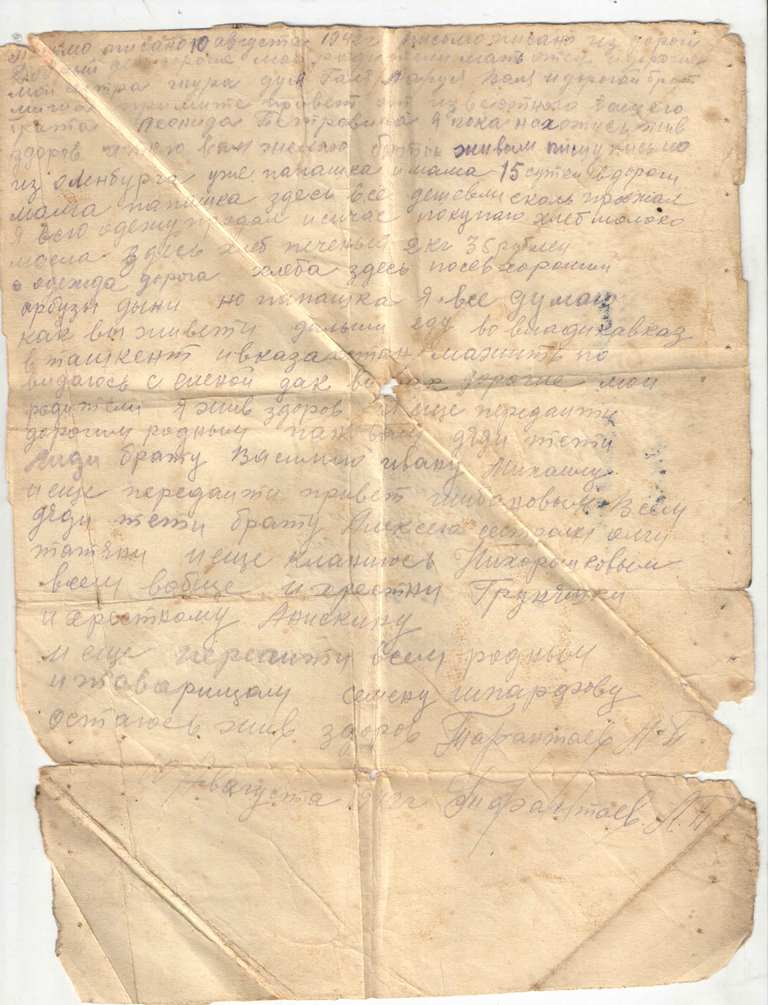 письмо писано 10 августа 1942г письмо писано из дороги
мои дорогие мои родители мать отец и дорогие
мои сестра шура дуся Галя Маруся Валя и дорогой брат
миша примите привет от известного вашего
брата Леонида Петровича я пока нахожусь жив
здоров чиго и вам желаю быть живым пишу письмо
из оленбурга уже папашка и мама 15 сутки в дороги
мама папашка здесь все дешевли сколь проехал
я всю одежу продал исичас покупаю хлеб молоко
масла здесь хлеб печеный 2 кг 35 рублей
а одежда дорога хлеба здесь посев хороший
арбузы дыни но папашка я все думаю
как вы живети дальши еду во владикавказ
в ташкент ивказахстан можить по
видаюсь с дорогие мои
родители я жив здоров и еще передайти
дорогим родным дяди тети
лиди брату Василию ивану Михаилу
и еще передайти привет всем
дяди тети брату Алексею олги
татяни и еще кланиюсь Нихорошковым
всем вобще и хрестни Груняшки
и хросткому Анискину
и еще всем родным
и товарищам семену
остаюсь жив здоров Тарантаев Л.П
10 Августа 1942г Тарантаев Л.П